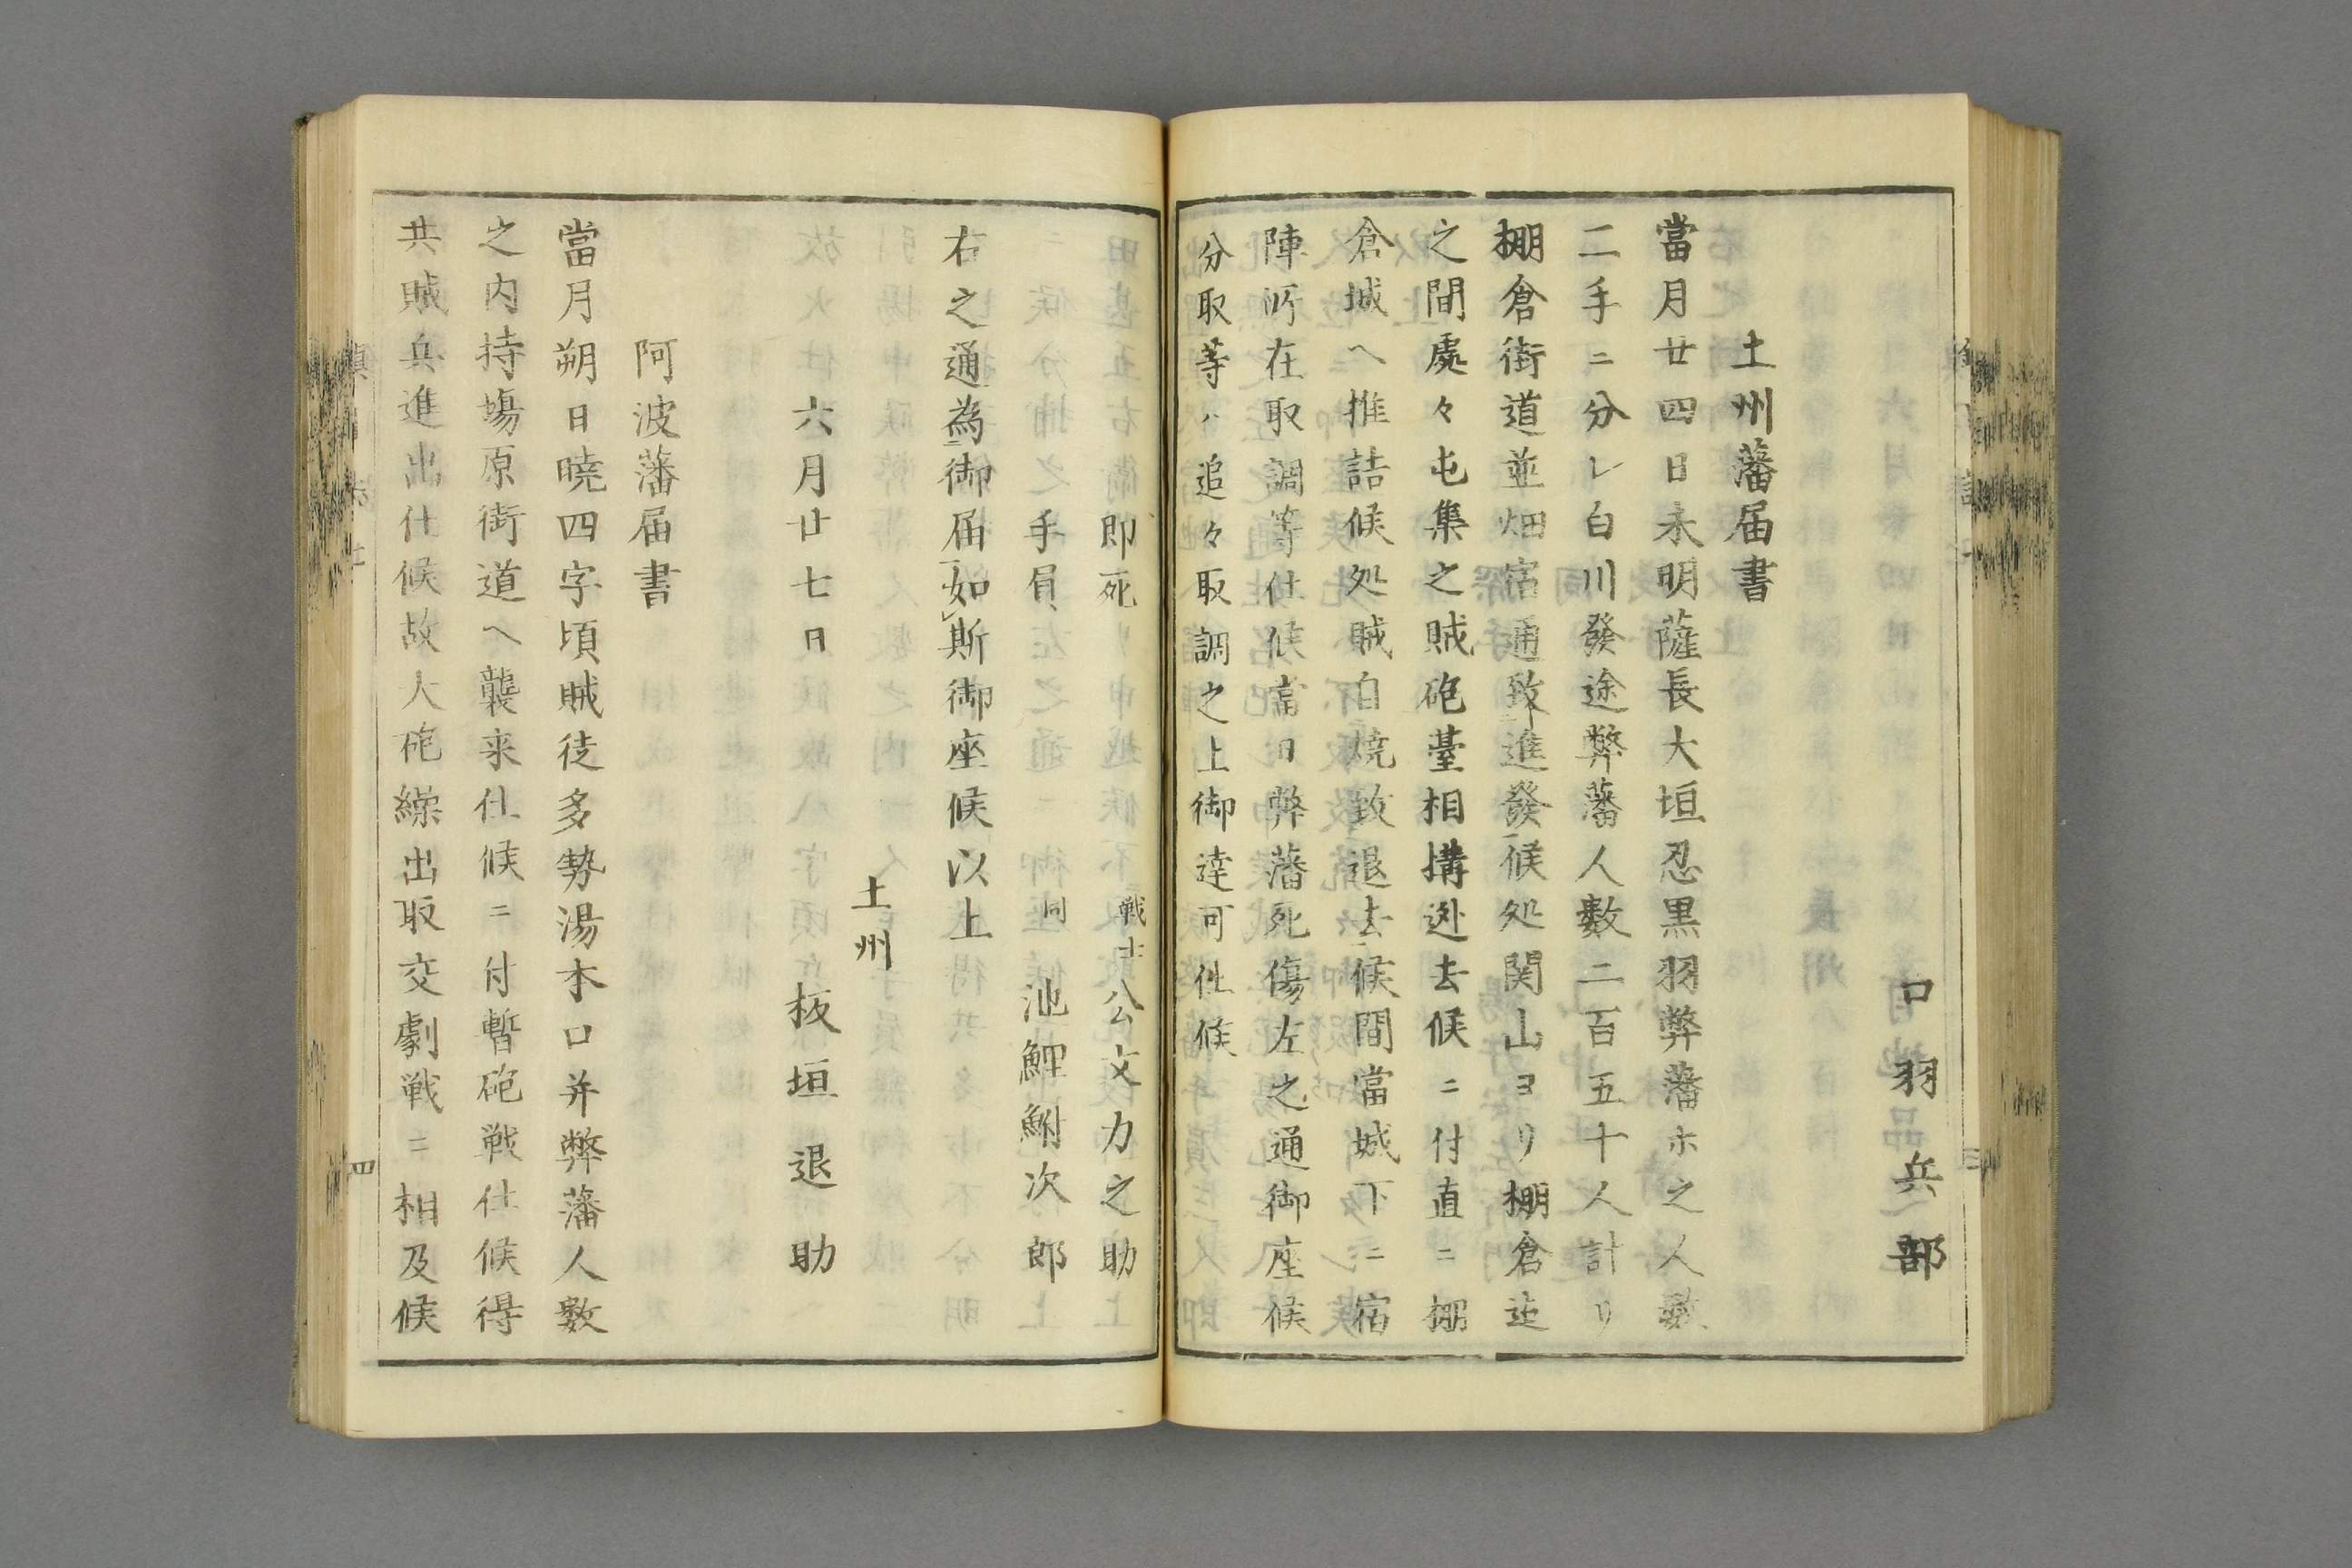 口羽兵部
土州藩届書
當月廿四日未明薩長大垣忍黒羽弊藩ホ之人數
二手ニ分レ白川發途弊藩人數二百五十人計リ
棚倉街道並畑宿通致進發候処関山ヨリ棚倉迠
之間處々屯集之賊砲臺相搆迯去候ニ付直ニ棚
倉城ヘ推詰候処賊自燒致退去候間當城下ニ宿
陣所在取調等仕候當日弊藩死傷左之通御座候
分取等ハ追々取調之上御達可仕候
即死　戦士　公文力之助
手負　同　池鯉鮒次郎
右之通為御届如斯御座候以上
土州
六月廿七日　板垣退助
阿波藩届書
當月朔日曉四字頃賊徒多勢湯本口并弊藩人數
之内持場原街道ヘ襲来仕候ニ付暫砲戦仕候得
共賊兵進出仕候故大砲繰出取交劇戦ニ相及候
四